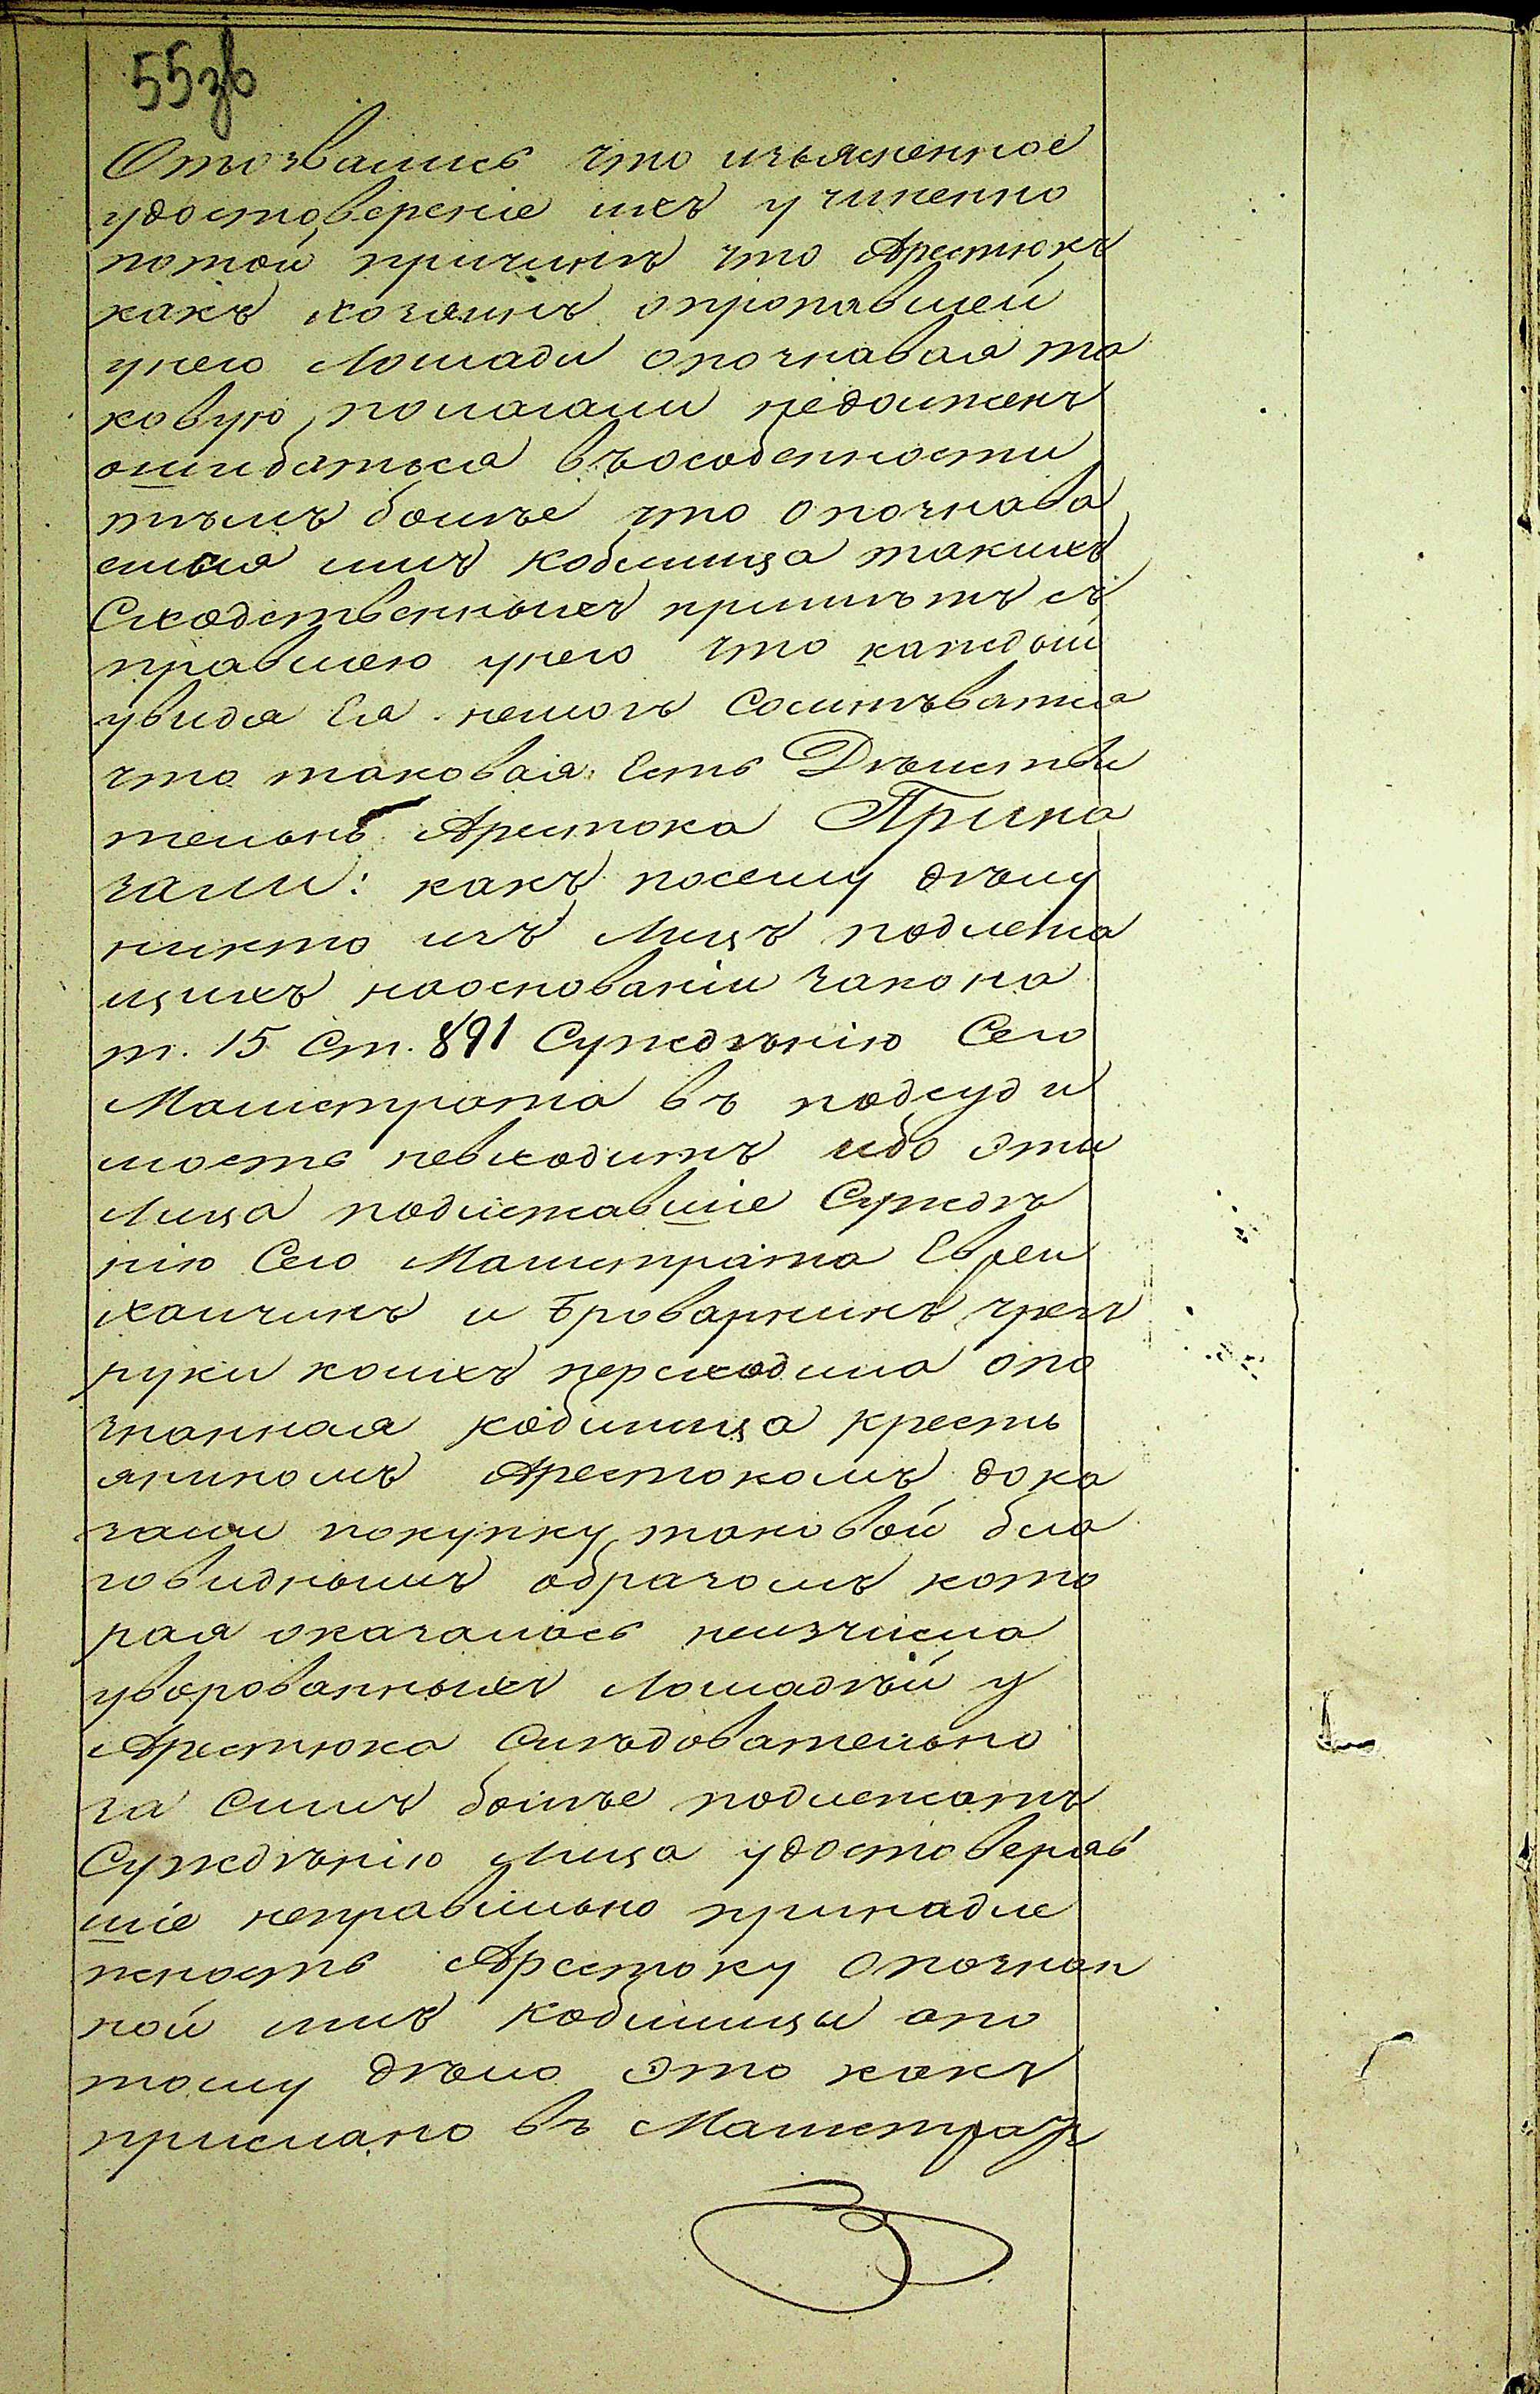 55зв
Отозвались что изъясненное
удостоверение ихъ учиненно
потой причинѣ что Арестюкъ
какъ хозяинъ опропавшей
унего Лошади опознавая та
ковую полагали недолженъ
ошибаться въособенности
тѣмъ болѣе что опознава
емая имъ кобылица такихъ
Сходственныхъ примѣтъ съ
правшею унего что каждый
увидя Ея немогъ Сомнѣватся
что таковая Есть Дѣистви
тельнѣ Арестюка Прика
зали: какъ посему дѣлу
никто изъ Лицъ подлежа
щихъ наосновании закона
т. 15 Ст. 891 Сужденію Сего
Магистрата въ подсуди
мость невходитъ ибо эти
Лица подлежавшіе Сужде
нію Сего Магистрата Евреи
Хаичикъ и Броварникъ чрезъ
руки коихъ переходила опо
знанная кобылица кресть
яниномъ Арестюкомъ дока
зали покупку таковой бла
говиднымъ образомъ кото
рая оказалась неизчисла
уворованныхъ Лошадѣй у
Арестюка Слѣдовательно
за Симъ болѣе подлежатъ
Сужденію Лица удостоверяв
шіе неправильно принадле
жность Арестюку Опознан
ной имъ Кобылицы апо
тому дѣло это какъ
прислано въ Магистратъ